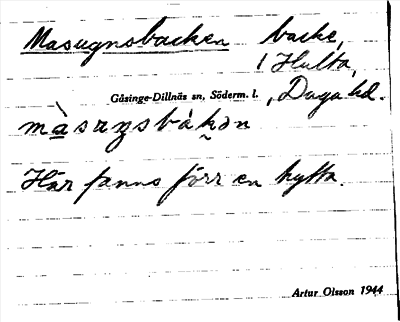 Masugnsbacken backe,
i Hulta,
Gåsinge-Dillnäs sn, Söderm. l. , Daga hd.
màsuŋsbàkən
Här fanns förr en hytta.
Artur Olsson 1944